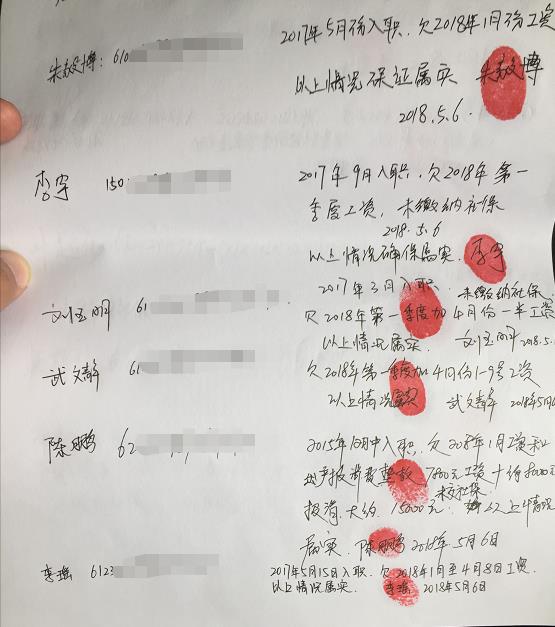 朱毅博：610
2017年5月份入职．欠2018年1月份工资
以上情况保证属实 朱毅博
2018.5.6.
李宇 150
2017年9月入职．欠2018年第一
季度工资，未缴纳社保
2018.5.6
以上情况确保属实．李宇
2017年3月入职．未缴纳社保．
刘玉明 61
欠2018年第一季度加4月份一半工资
以上情况属实． 刘玉明 2018.5.
武文静 61
欠2018年第一季度加4月份1-9号工资
以上情况属实 武文静 2018年5月6
陈鹏 62
2015年 月中入职．欠2018年1月工资和
7800元工资 8000元
未交社保．
投资．大约 15000元． 以上情况
属实．陈鹏 2018年5月6日
李瑶 6123
2017年5月15日入职．欠2018年1月至4月8日工资．
以上情况属实． 李瑶 2018年5月6日